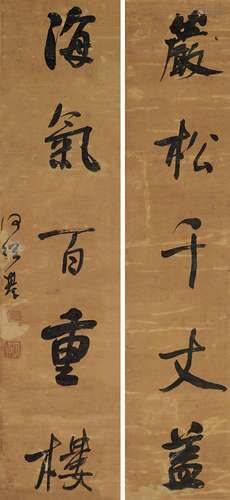 嚴松千丈蓋
海氣百重樓
何紹基